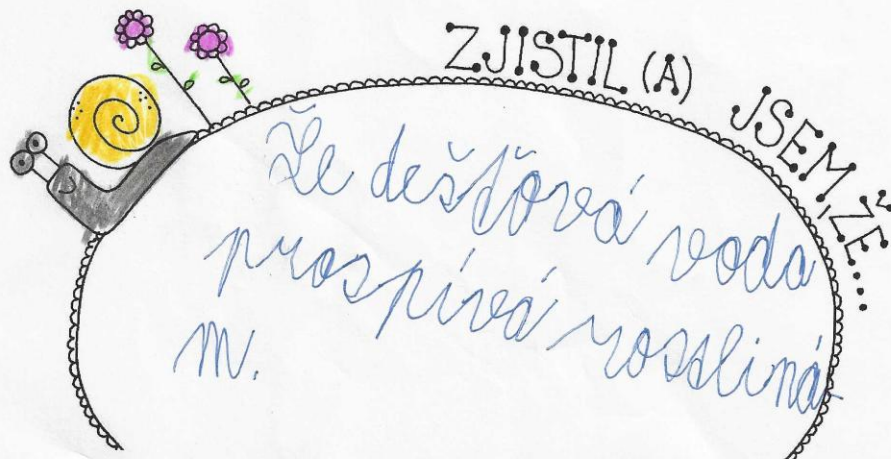 ZJISTIL(A) JSEM, ŽE...
Že dešťová voda
prospívá rostliná-
m.